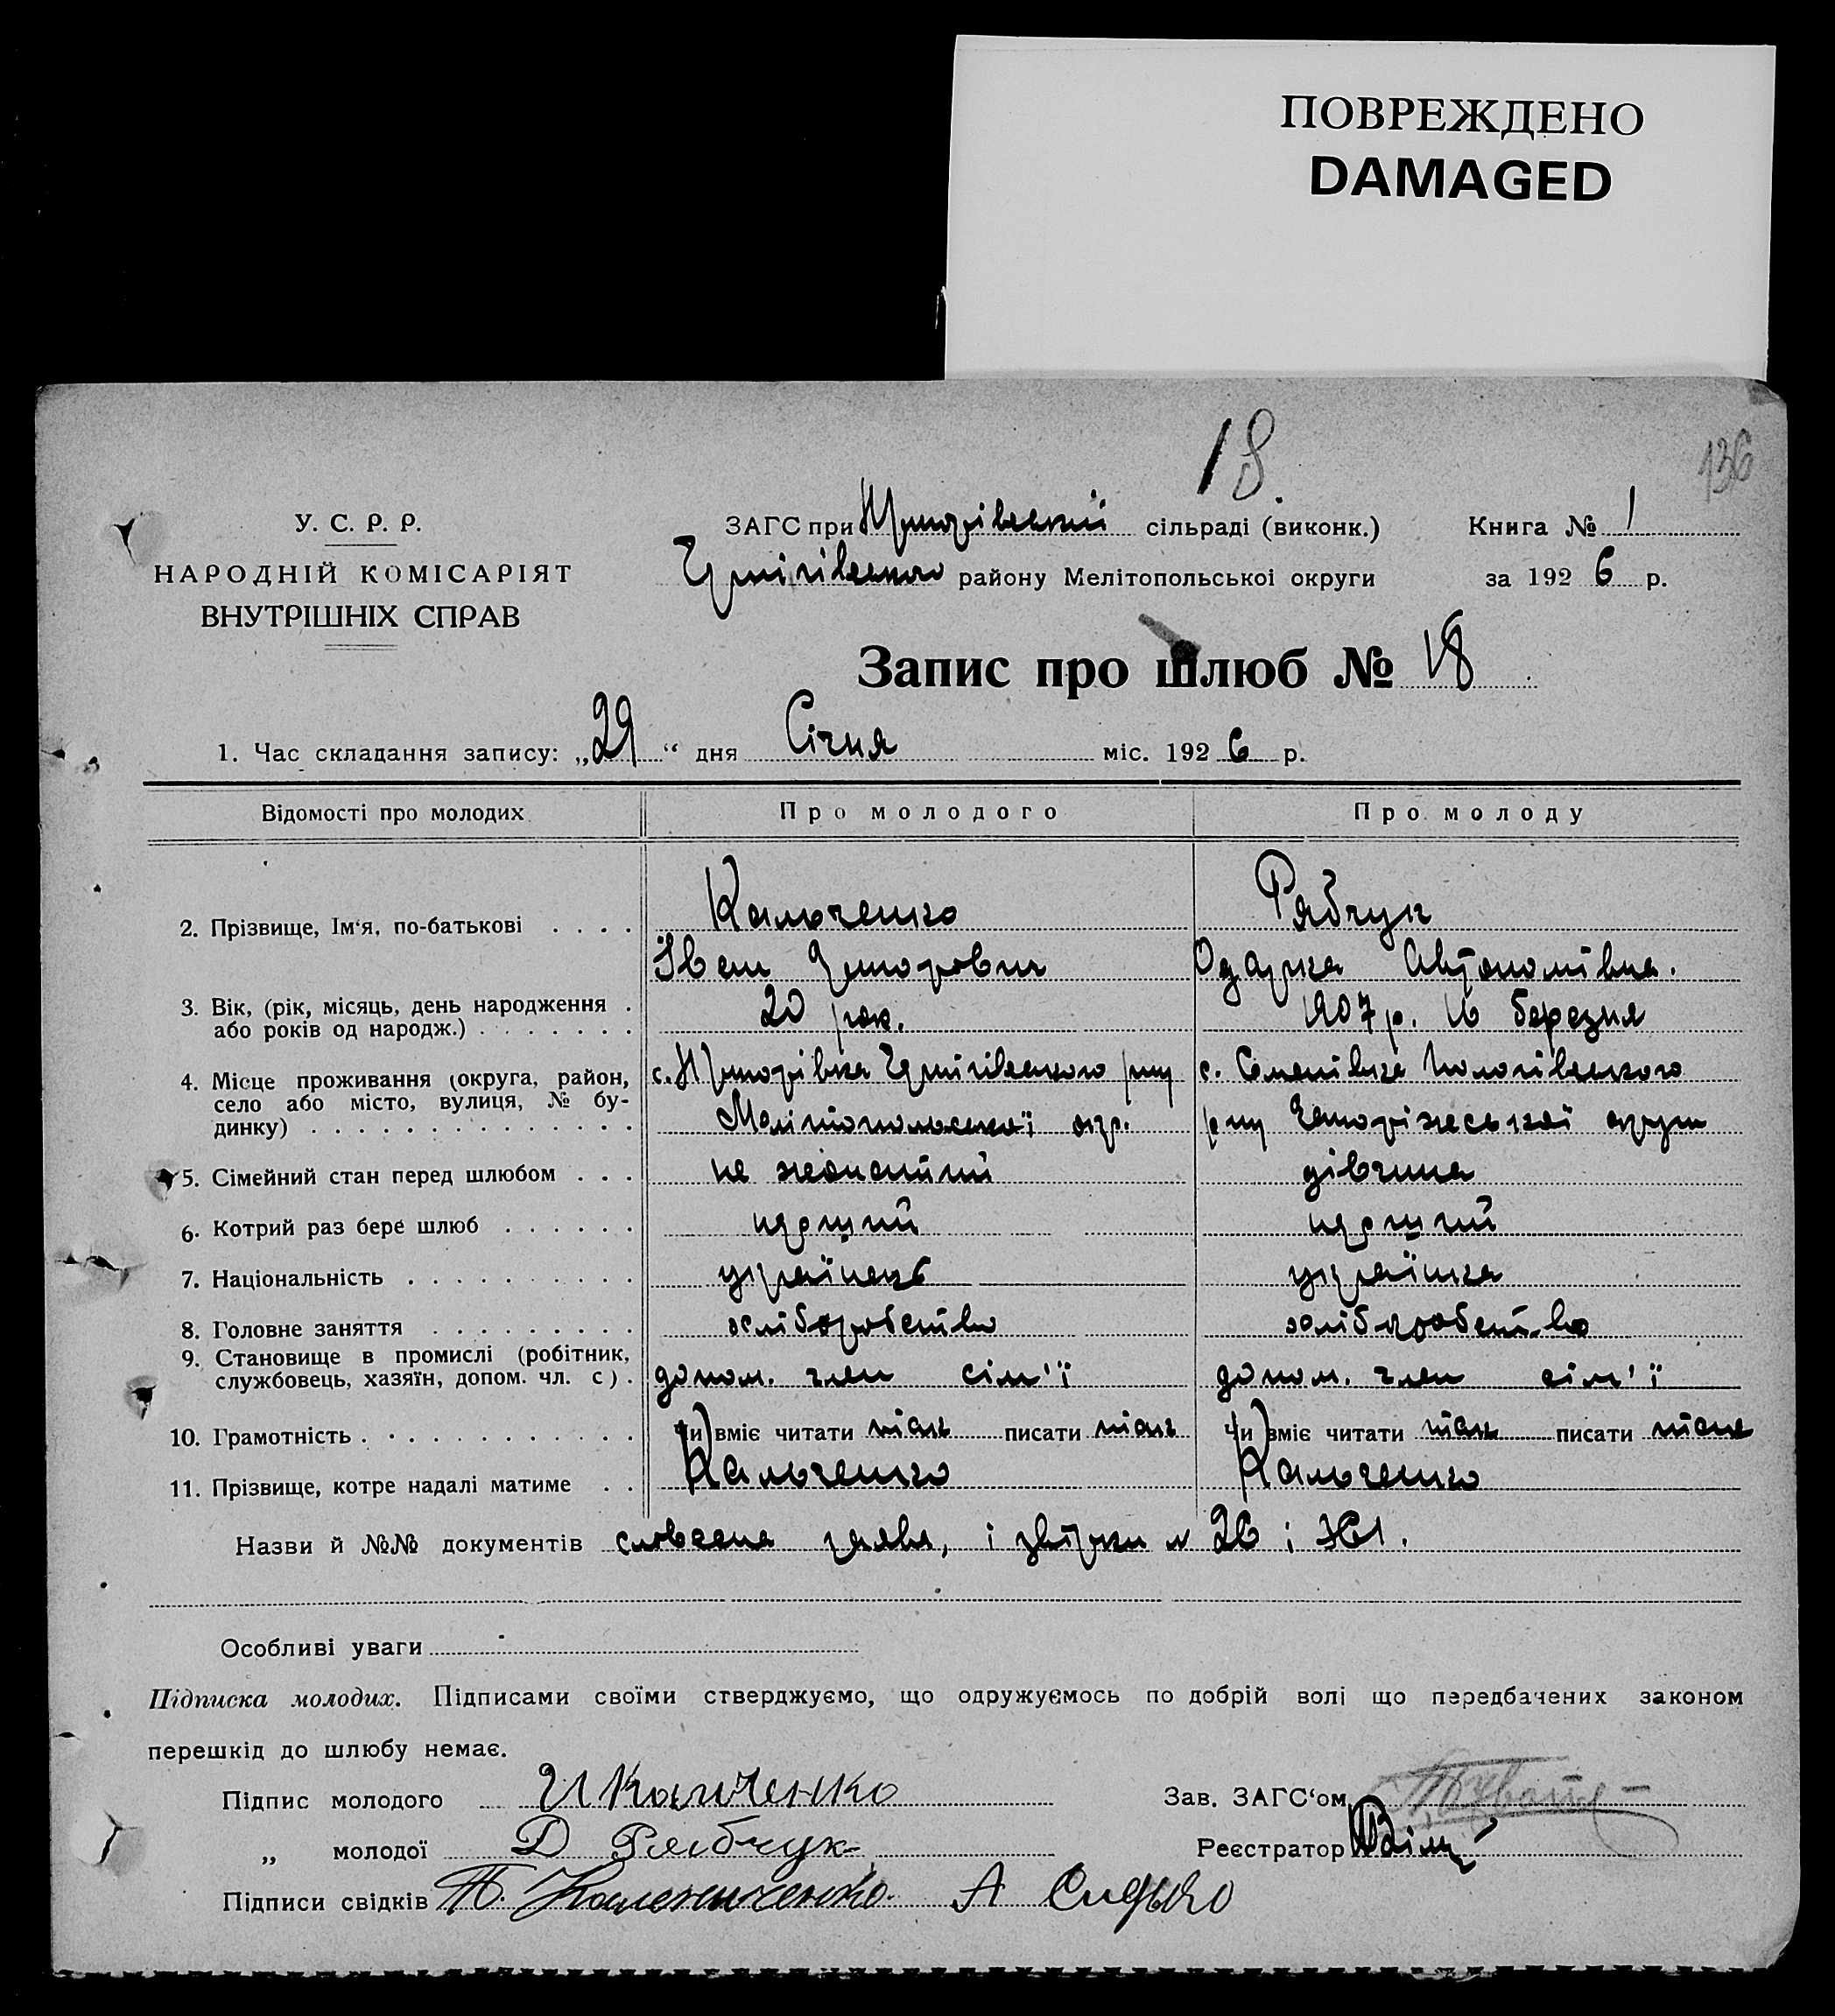 ПОВРЕЖДЕНО
DAMAGED
18.
136
У. С. Р. Р.
НАРОДНІЙ КОМІСАРІЯТ
ВНУТРІШНІХ СПРАВ
ЗАГС при сільраді (виконк.) Книга № 1
району Мелітопольської округи за 1926 р.
Запис про шлюб № 18
1. Час складання запису: „29“ дня Січня міс. 1926 р.
Відомості про молодих Про молодого Про молоду
2. Прізвище, Ім‘я, по-батькові . . . . Кальченко Рябчук
Іван Одарка Автономівна.
3. Вік, (рік, місяць, день народження . 20 рок. 1907 р. 16 березня
або років од народж.) . . . . . . .
4. Місце проживання (округа, район, с. с. Семенівка Пологівського
село або місто, вулиця, № бу- Мелітопольської окр. Запоріжеської округи
динку) . . . . . . . . . . . . . .
5. Сімейний стан перед шлюбом . . . не жонатий дівчина
6. Котрий раз бере шлюб . . . . . . перший перший
7. Національність . . . . . . . . . . українець українка
8. Головне заняття . . . . . . . . . хліборобство хліборобство
9. Становище в промислі (робітник,
службовець, хазяїн, допом. чл. с) . допом. член сім'ї допом. член сім'ї
10. Грамотність . . . . . . . . . . . . Чи вміє читати так писати так Чи вміє читати так писати так
11. Прізвище, котре надалі матиме . . Кальченко Кальченко
Назви й №№ документів словесна заява, і № 26 і
Особливі уваги
Підписка молодих. Підписами своїми стверджуємо, що одружуємось по добрій волі що передбачених законом
перешкід до шлюбу немає.
Підпис молодого И Калченко Зав. ЗАГС‘ом
„ молодої Д Рябчук Реєстратор
Підписи свідків Т. Калениченко. А